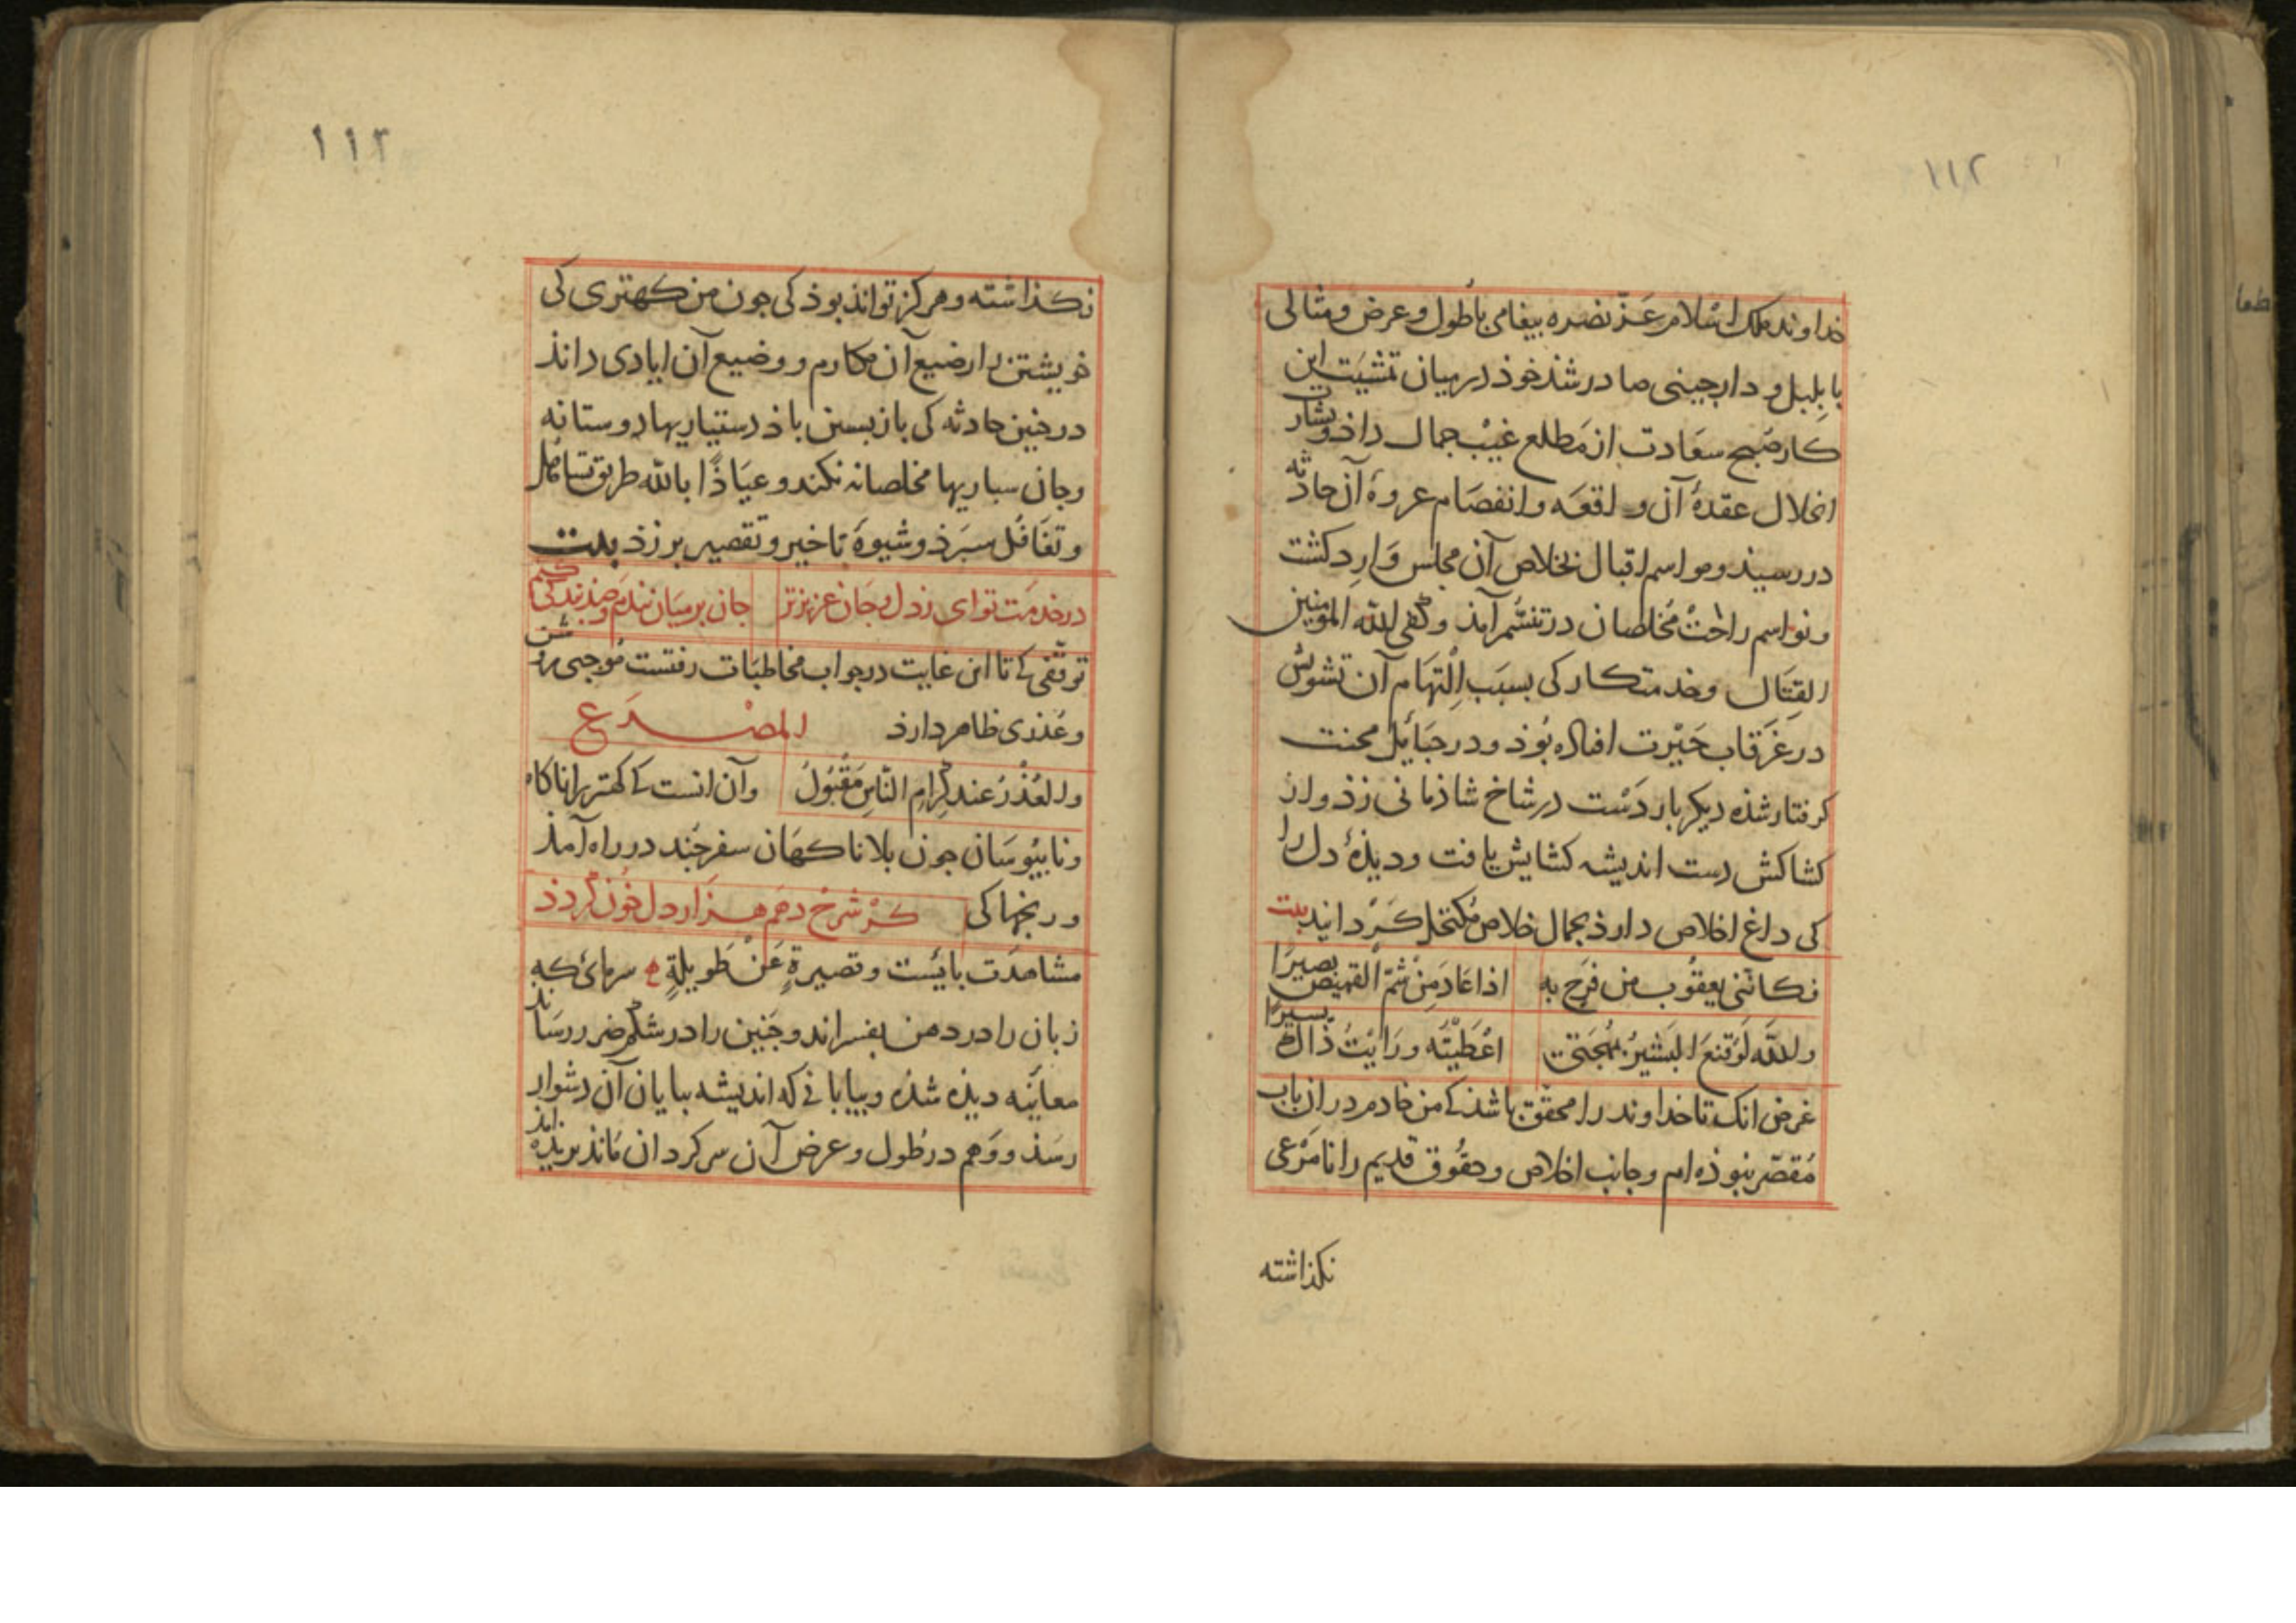 ۱۱۲
خداوند ملک اسلام عَزّ نصره بیغامی باطول و عرض و مثالی
با بلبل و دارجینی صادر شذ خوذ در میان تمشیَت این
کار صُبح سعَادت از مَطلع غیْب جمال داذ و بشارت
انحلال عقدهٔ آن واقعَه و انفصَام عروهٔ آن حادثه
در رسیذ و مواسم اقبال بخلاص آن مجلس وَارِد کشت
و نواسم راحَتْ مُخلصان در تنسُّم آمذ و کفی الله المؤمنین
القِتَال و خدمتکار کی بسبَب اِلْتِهَام آن تشویش
در غَرقاب حَیْرت افتاده بُوذ و در حَبَائِل محنت
کرفتار شذه دیکر بار دَسْت در شاخ شاذمانی زذ و از
کشاکش دست اندیشه کشایش یافت و دیذهٔ دل را
کی داغ اخلاص دارذ بجمال خلاص مُکتحل کَرْدانید بیت
فکانّنی یعقُوب من فرَحٍ به اذا عَادَ مِنْ شَمّ القمیص بَصیرَا
واللهِ لَوْ قنعَ البَشیرُ بمُهجَتی اعْطَیْتُه و رَایْتُ ذاکَ یسیرًا
غرض انک تا خداوند را محقّق باشذ کی من خادم در ان باب
مُقصّر نبوذه ام و جانب اخلاص و حقُوق قدیم را نامَرْعی
نکذاشته
۱۱۳
نکذاشته و هرکز تواند بوذ کی جون من کهتری کی
خویشتن را رضیع آن مکارم و وضیع آن ایادی داند
در جنین حادثه کی باز بسین باذ دستیاریها دوستانه
و جان سباریها مخلصانه نکند و عیَاذًا بالله طریق تساهُل
و تغَافُل سبَرذ و شیوهٔ تاخیر و تقصیر برزذ بیت
در خدمَت تو ای ز دل و جان عزیزتر جان بر میَان نبندم و صَذ بندکی کنم
توقّفی کی تا این غایت در جواب مخاطبَات رفتست مُوجبی روشن
و عُذری ظاهر دارذ المصْرَع
و العُذْرُ عند کِرامِ النّاسِ مَقْبُولُ و آن انست کی کهتر را ناکام
و نابیُوسَان جون بلا ناکهَان سفر جند در راه آمذ
و رنجها کی کَرْ شرح دهم هزار دل خُون کردذ
مشاهدَت بایست و قصیرةٍ عَنْ طَویلةٍ سرمائی که
زبان را در دهن بفسراند و جَنین را در شکم ضرر رسَاند
معاینَه دیذه شذه و بیابانی که اندیشه ببایان آن دشوار
رسَذ و وَهم در طُول و عرض آن سرکردان مَانذ بریذه امذ